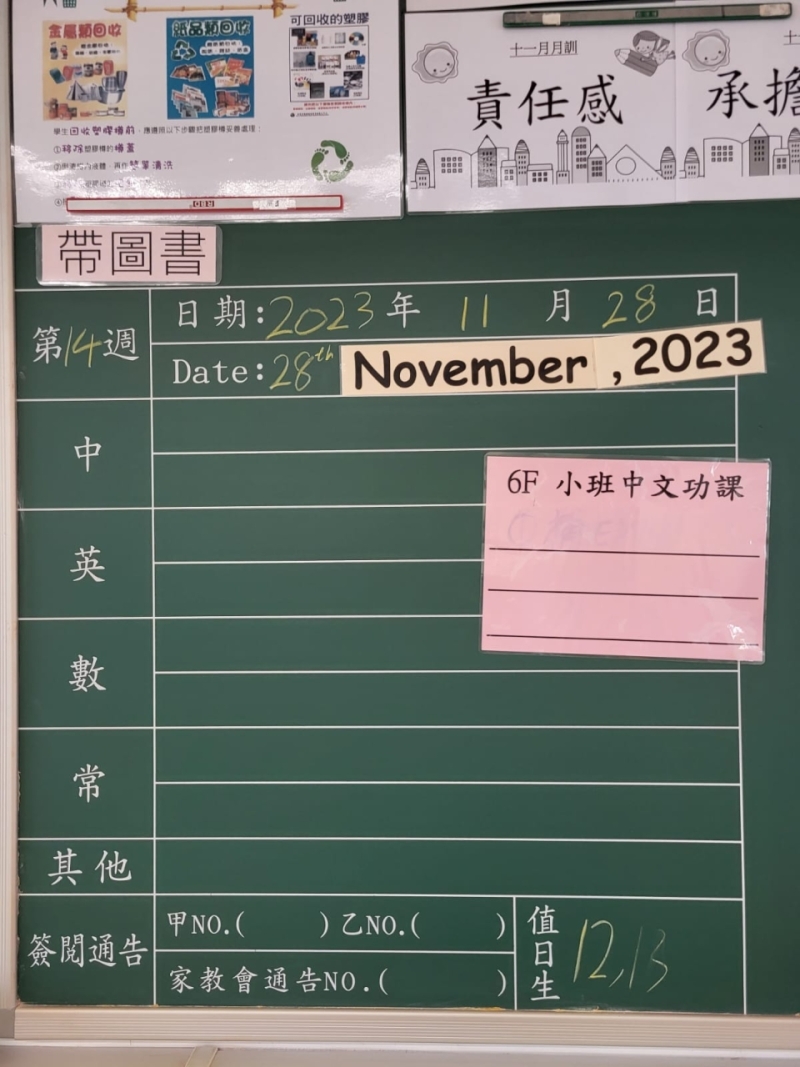 金屬類回收
紙品類回收
可回收的塑膠
學生回收塑膠樽前，應遵照以下步驟把塑膠樽妥善處理：
①移除塑膠樽的樽蓋
簡單清洗
十一月月訓
責任感
承擔
帶圖書
第14週
日期:2023年 11 月 28 日
Date:28th November ,2023
中
6F 小班中文功課
英
數
常
其他
簽閱通告
甲NO.( ) 乙NO.( )
家教會通告NO.( )
值日生 12,13